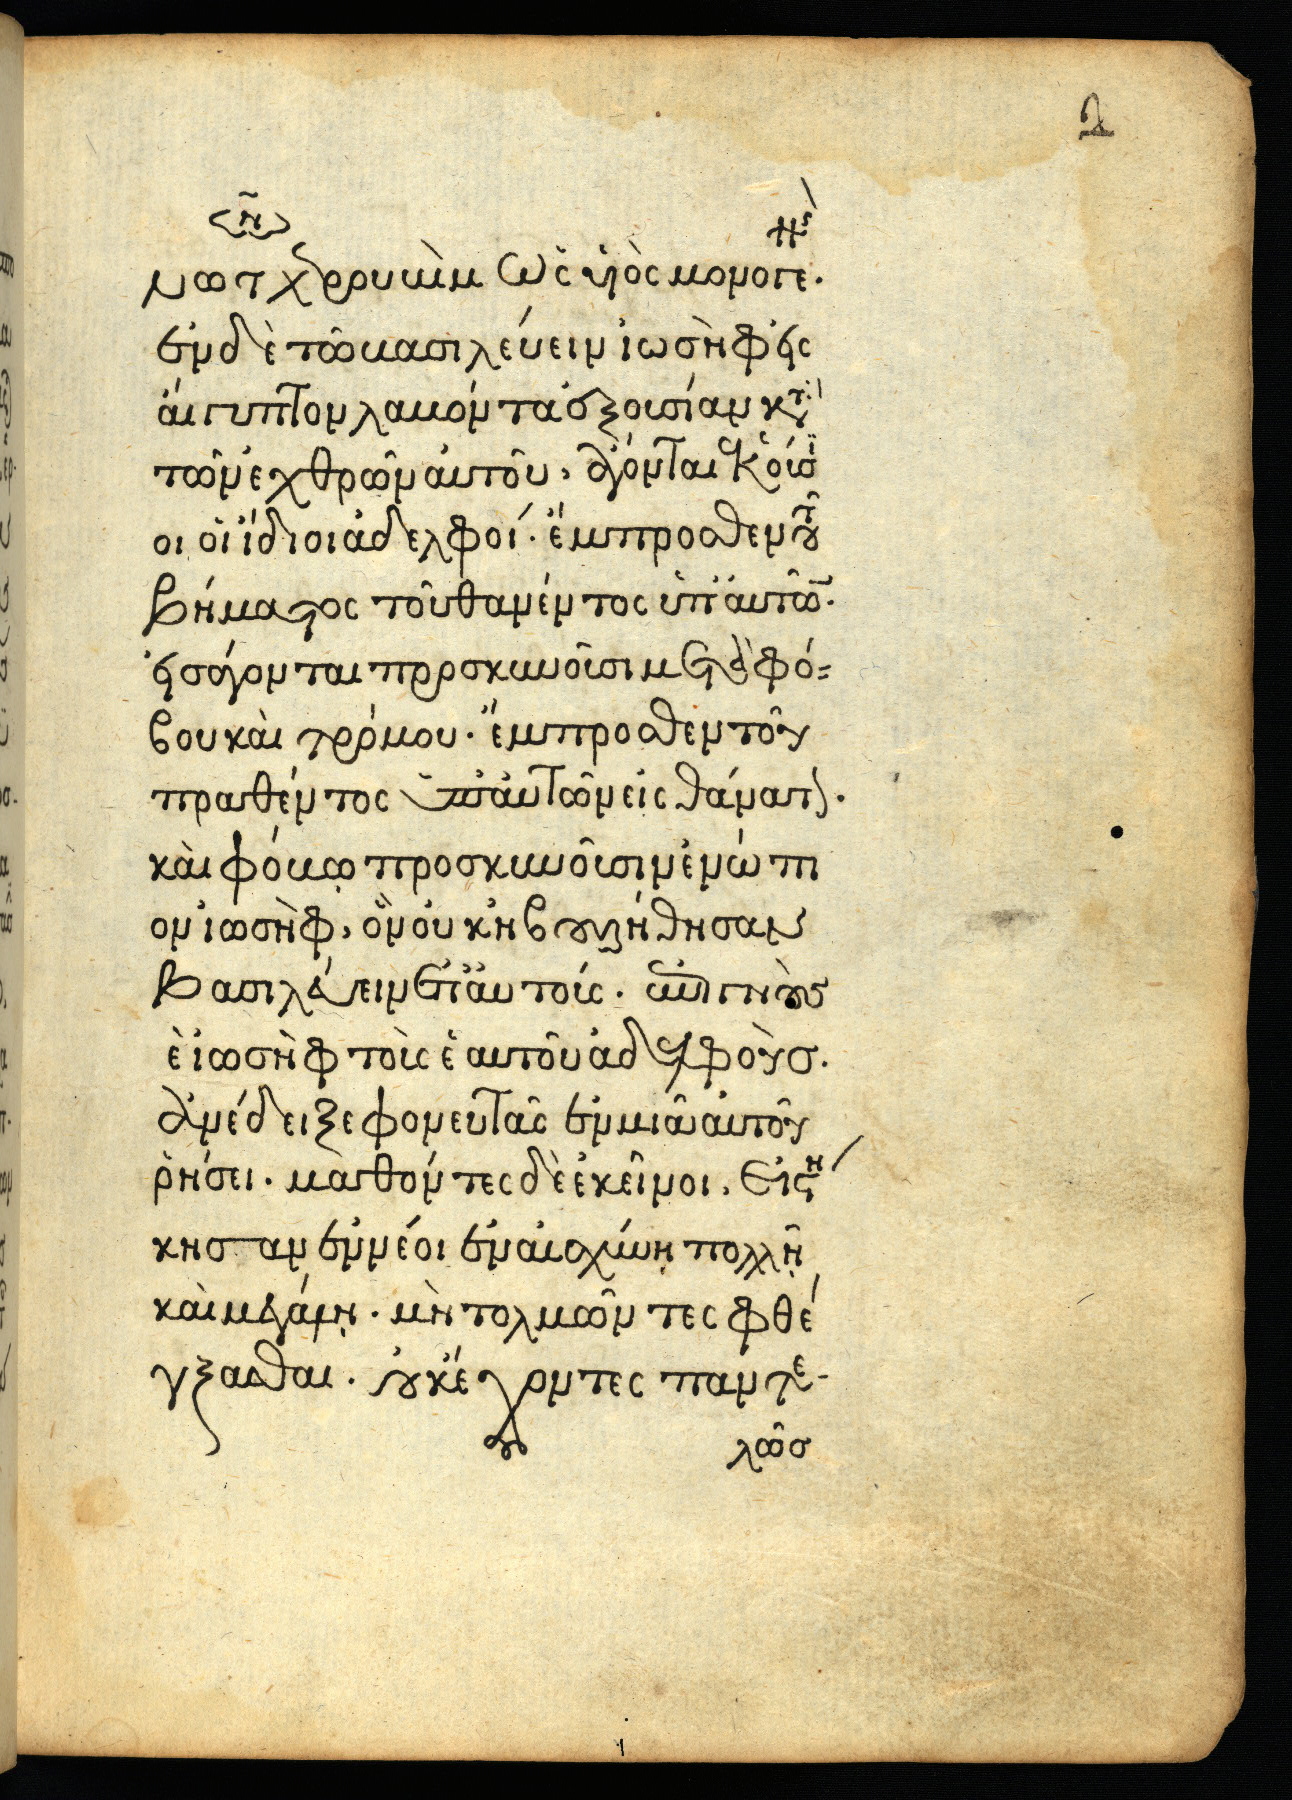 2
ν
νω τῶν χερουβὶμ ὡς υἱὸς μονογενὴς.
ἐν δὲ τῶ βασιλεύειν ἰωσὴφ εἰς
αἴγυπτον λαβόντα ἐξουσίαν κατὰ
τῶν ἐχθρῶν αὐτοῦ, ἄγονται ἑκούσι
οι οἱ ἴδιοι ἀδελφοί. ἔμπροσθεν τοῦ
βήματος τοῦ θανέντος ὑπ' αὐτῶν.
εἰσάγονται προσκυνοῦσι μετὰ φό-
βου καὶ τρόμου. ἔμπροσθεν τοῦ
πραθέντος ὑπ' αὐτῶν εἰς θάνατον.
καὶ φόβω προσκυνοῦσιν ἐνώπι
ον ἰωσὴφ, ὃν οὐκ ἠβουλήθησαν
βασιλεύειν ἐπ' αὐτοίς. ἐπιγνοὺς
δὲ ἰωσὴφ τοὺς ἑαυτοῦ ἀδελφοὺς.
ἀνέδειξε φονευτὰς ἐν μιᾶ αὐτοῦ
ῥήσει. μαθόντες δὲ ἐκεῖνοι, εἱστή
κησαν ἐννέοι ἐν αἰσχύνῃ πολλῇ
καὶ μεγάλῃ. μὴ τολμῶντες φθέ
γξασθαι. οὐκ ἔχοντες παντε-
λῶς